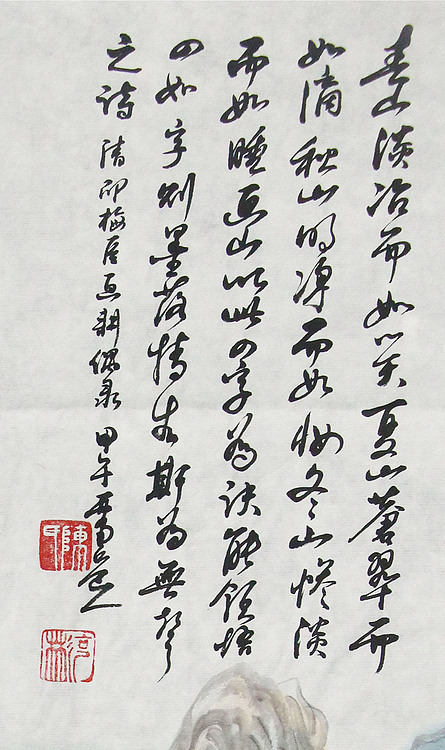 春山淡冶而如笑夏山蒼翠而
如滴秋山明凈而如妝冬山慘淡
而如睡画山以此四字為訣能領悟
四如字則墨落情生斯為無聲
之詩 清邵梅臣画耕偶录 甲午
陳
河林